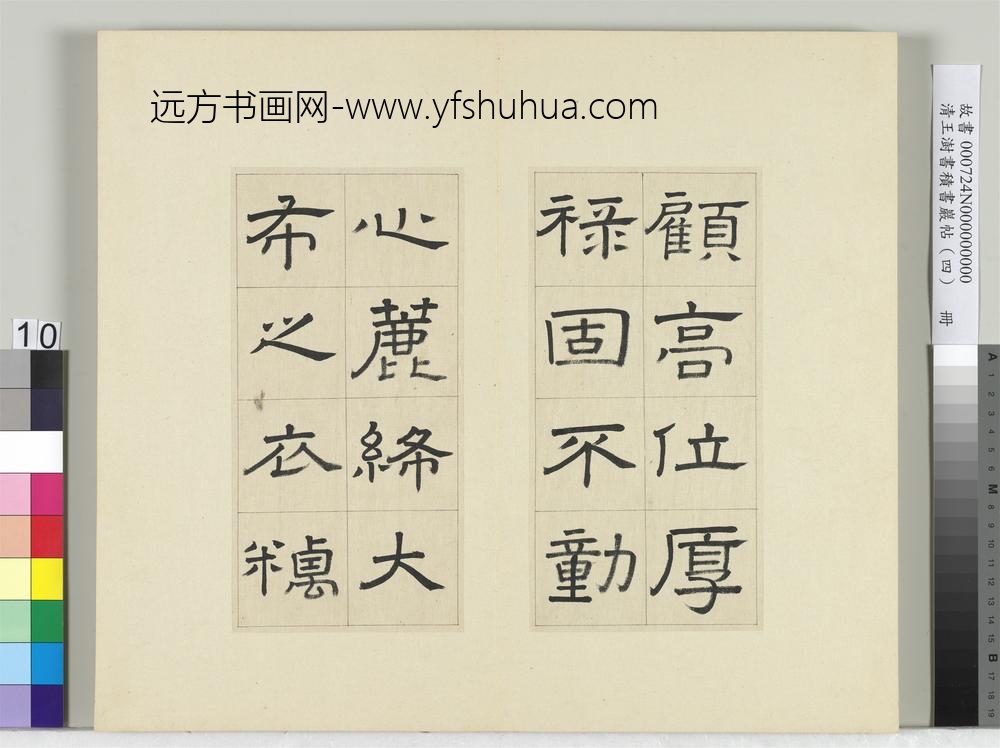 远方书画网-www.yfshuhua.com
顧高位厚
禄固不動
心麤絺大
布之衣糲
故書 000724N000000000
清王澍書積書巖帖(四) 冊
10
A 1 2 3 4 5 6 M 8 9 10 11 12 13 14 15 B 17 18 19